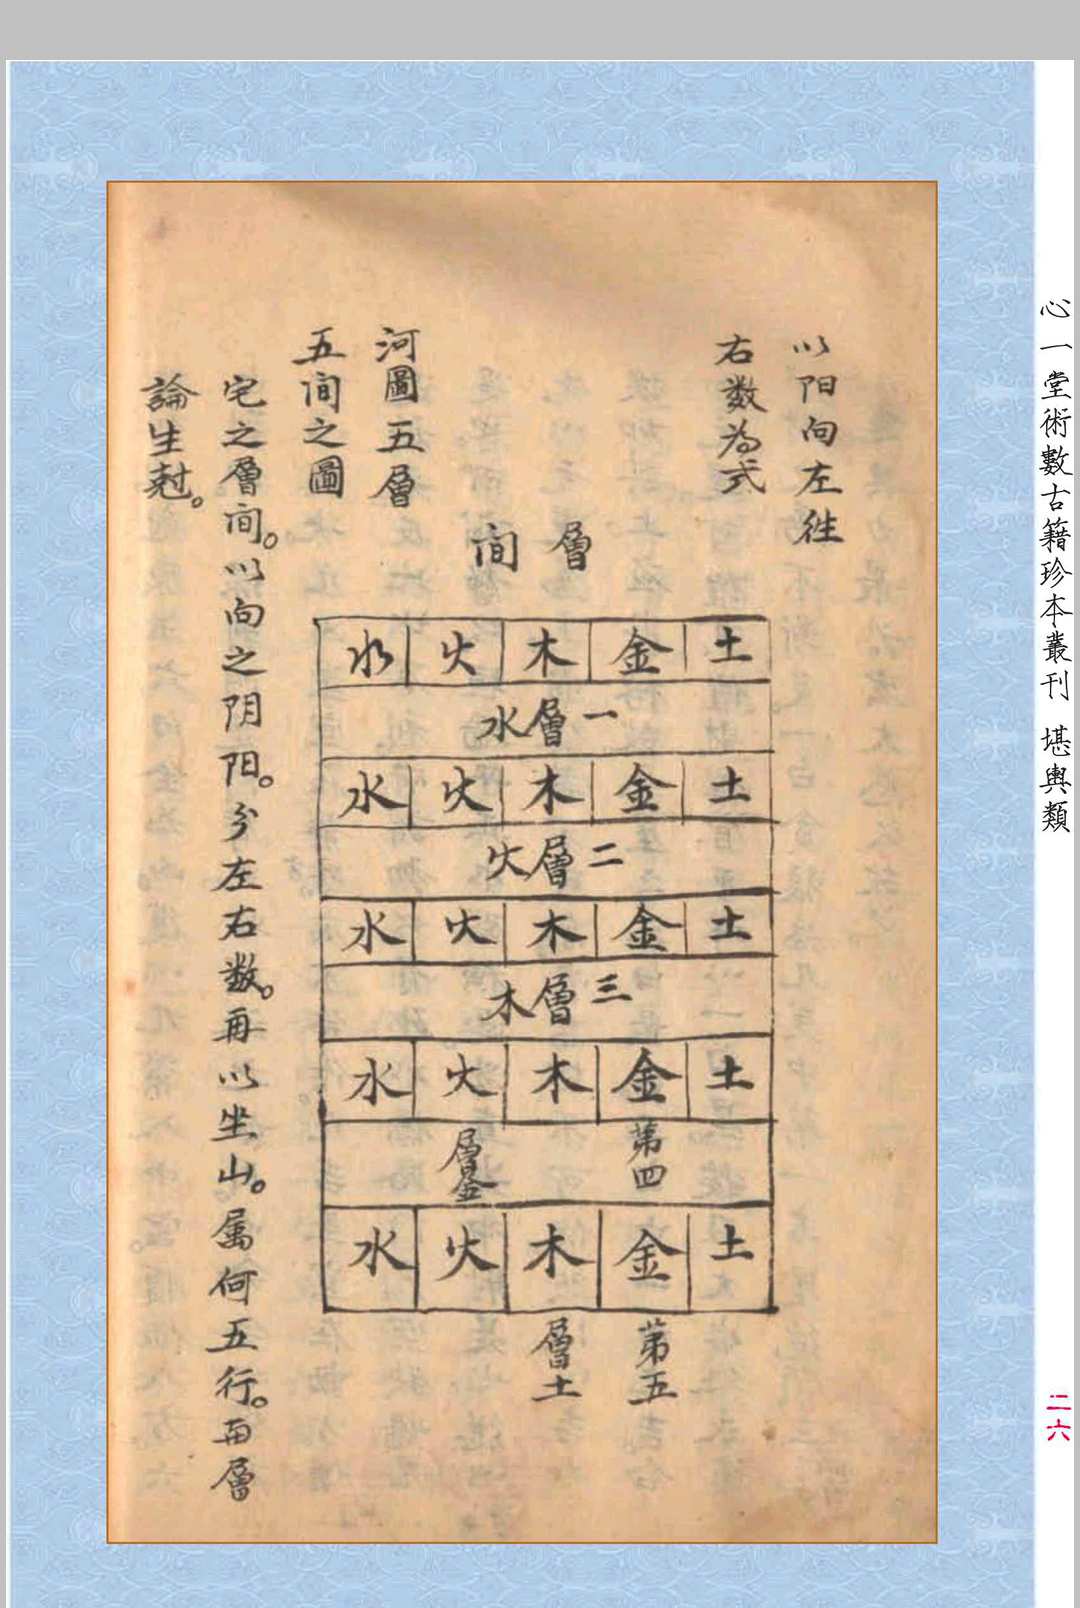 心一堂術數古籍珍本叢刊 堪輿類
二六
以阳向左徃
右数為式
層間
土 金 木 火 水
一層水
土 金 木 火 水
二層火
土 金 木 火 水
三層木
土 金 木 火 水
第四
層金
土 金 木 火 水
第五
層土
河圖五層
五间之圖
宅之層间。以向之阴阳。分左右数。再以坐山。属何五行。與層
論生尅。